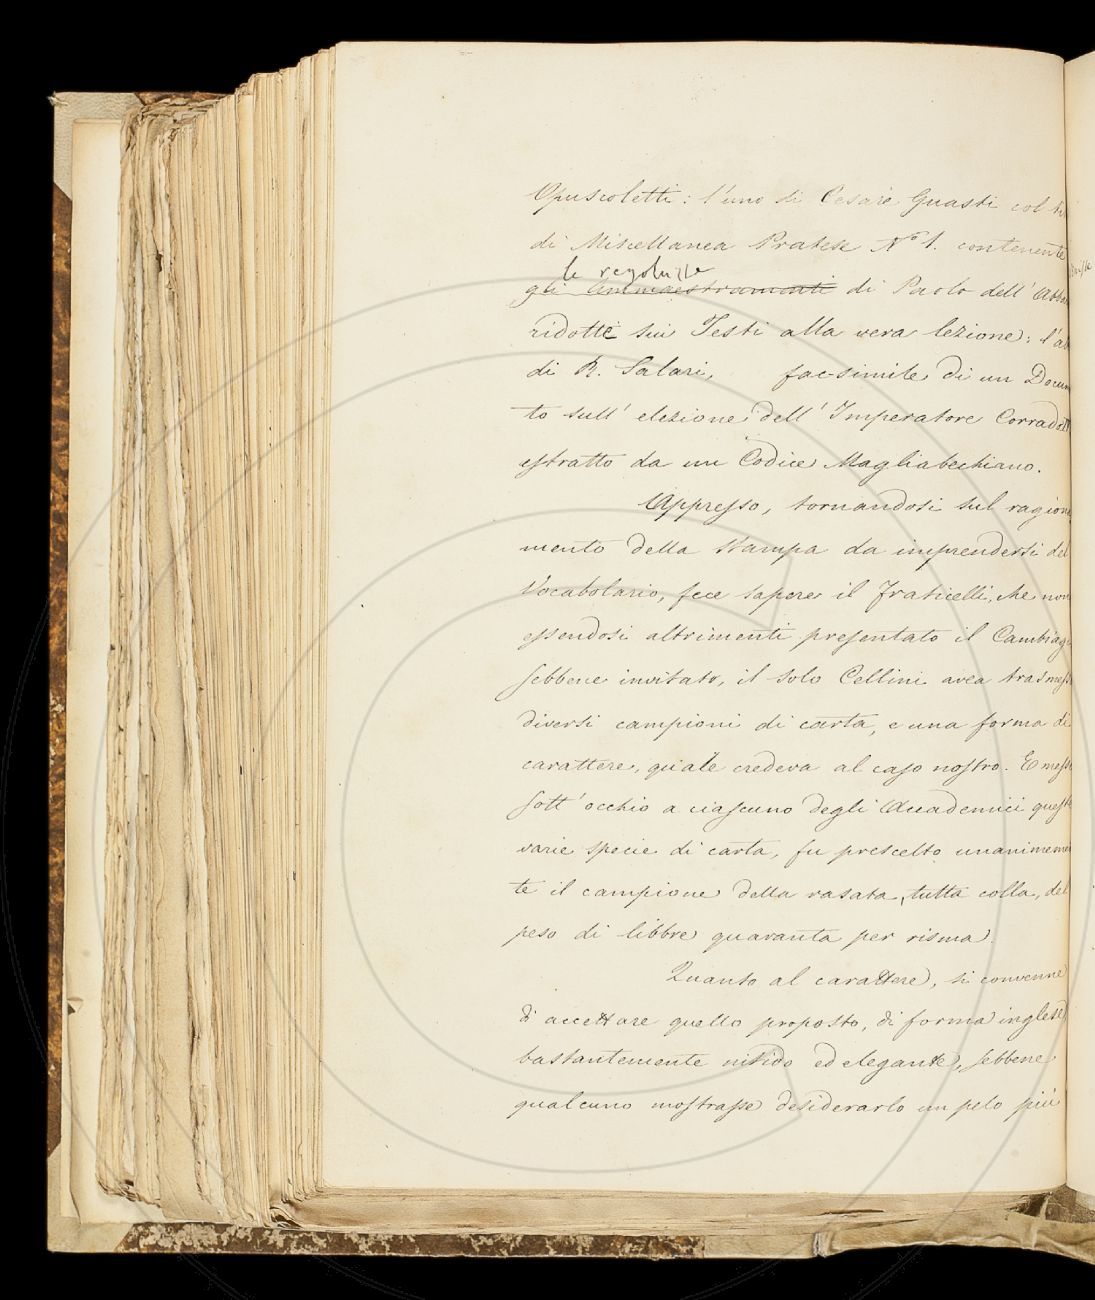 Opuscoletti: l'uno di Cesare Guasti col ti
di Miscellanea Pratese N.º 1. contenente
le regoluzze
gli Ammaestramenti di Paolo dell' Abba
ridotte sui Testi alla vera lezione; l'al
di R. Salari, fac-simile di un Docum
to sull' elezione dell' Imperatore Corrado
estratto da un Codice Magliabechiano.
Appresso, tornandosi sul ragiona
mento della stampa da imprendersi del
Vocabolario, fece sapere il Fraticelli, che non
essendosi altrimenti presentato il Cambiagi
sebbene invitato, il solo Cellini avea trasmess
diversi campioni di carta, e una forma di
carattere, quale credeva al caso nostro. E messe
sott' occhio a ciascuno degli Accademici queste
varie specie di carta, fu prescelto unanimemen
te il campione della rasata, tutta colla, del
peso di libbre quaranta per risma.
Quanto al carattere, si convenne
di accettare quello proposto, di forma inglese
bastantemente nitido ed elegante, sebbene
qualcuno mostrasse desiderarlo un pelo più